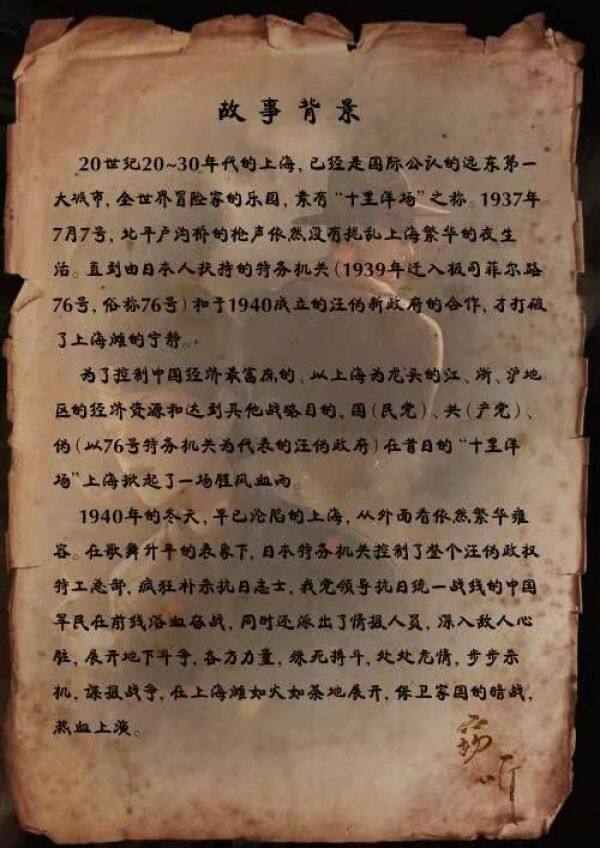 故事背景
20世纪20~30年代的上海，已经是国际公认的远东第一
大城市，全世界冒险家的乐园，素有“十里洋场”之称。1937年
7月7号，北平卢沟桥的枪声依然没有扰乱上海繁华的夜生
活。直到由日本人扶持的特务机关（1939年迁入极司菲尔路
76号，俗称76号）和于1940成立的汪伪新政府的合作，才打破
了上海滩的宁静。
为了控制中国经济最富庶的、以上海为龙头的江、浙、沪地
区的经济资源和达到其他战略目的，国（民党）、共（产党）、
伪（以76号特务机关为代表的汪伪政府）在昔日的“十里洋
场”上海掀起了一场腥风血雨。
1940年的冬天，早已沦陷的上海，从外面看依然繁华雍
容。在歌舞升平的表象下，日本特务机关控制了整个汪伪政权
特工总部，疯狂扑杀抗日志士，我党领导抗日统一战线的中国
军民在前线浴血奋战，同时还派出了情报人员，深入敌人心
脏，展开地下斗争，各方力量，殊死搏斗，处处危情，步步杀
机，谍报战争，在上海滩如火如荼地展开，保卫家园的暗战，
热血上演。
窃听